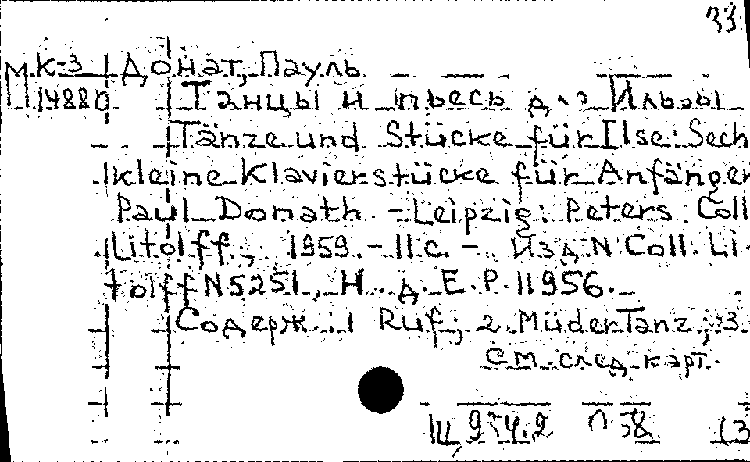 33
М К-3 Донат, Пауль
14880 Танцы и пьесы для Ильзы
Tänze und Stücke für Ilse: Sech
kleine Klavierstücke für Anfänger
Paul Donath. - Leipzig: Peters: Coll
Litolff, 1959. - 11 с. - Изд. N Coll. Li-
tolff N 5251, Н. д. E. P. 11956.
Содерж.: 1 Ruf; 2. Müder Tanz; 3
См. след. карт.